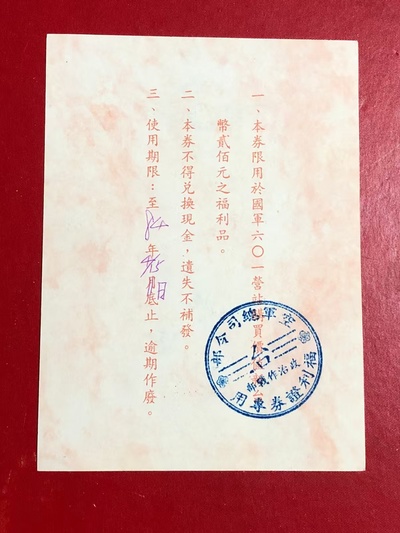 一、本券限用於國軍六〇一營站購買
幣貳佰元之福利品。
二、本券不得兌換現金，遺失不補發。
三、使用期限：至84年4/15日月底止，逾期作廢。
空軍總司令部
政治作戰部
福利證券專用